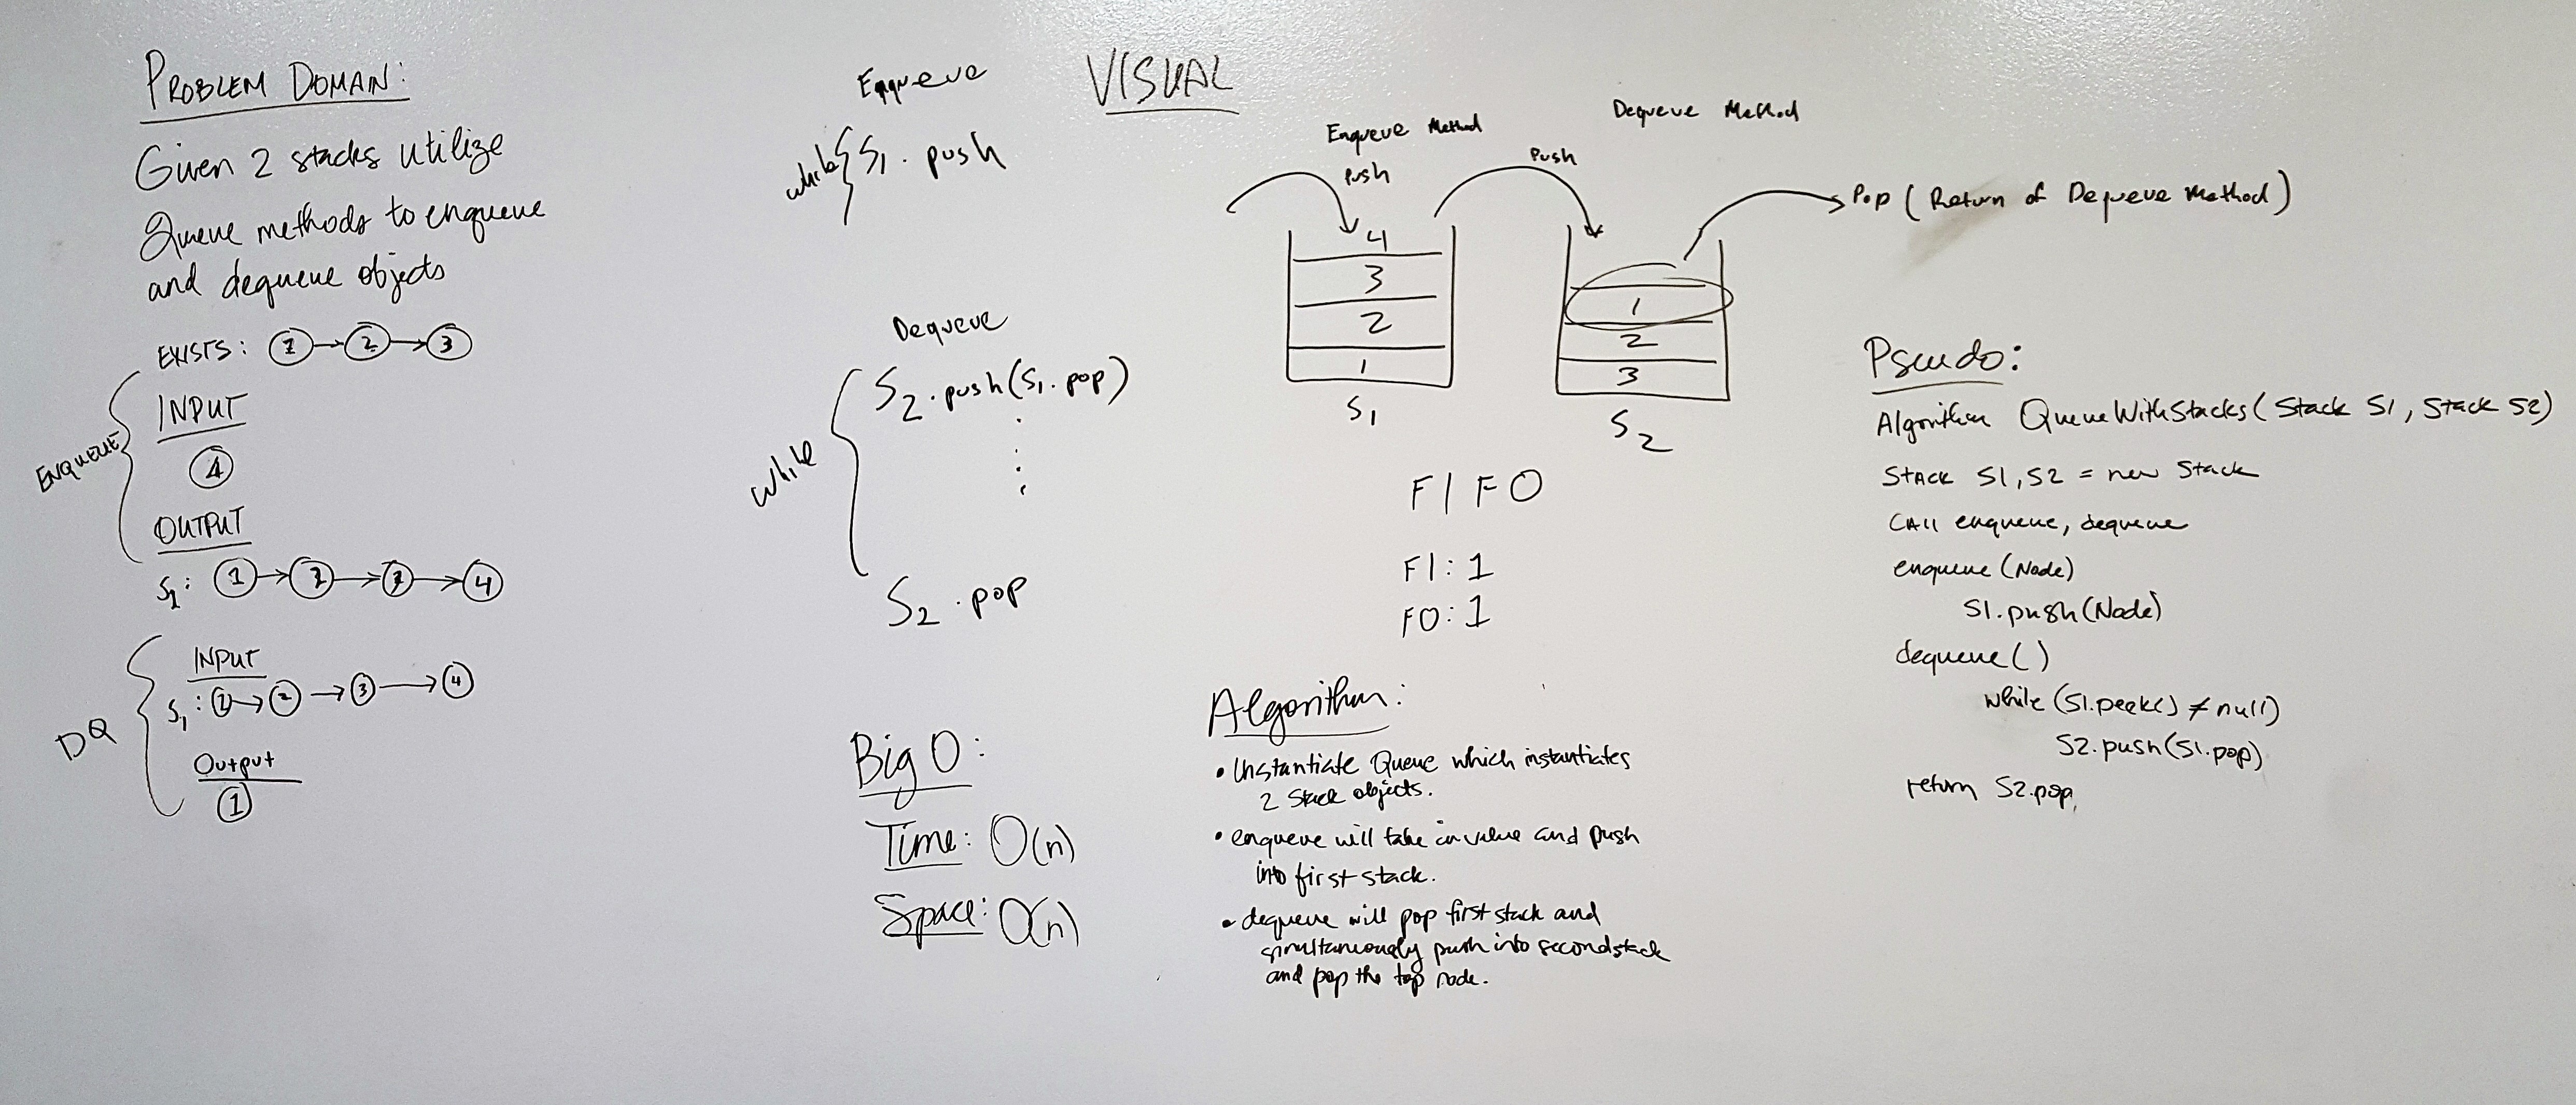 PROBLEM DOMAIN:
Given 2 stacks utilize
Queue methods to enqueue
and dequeue objects
EXISTS: 1 → 2 → 3
ENQUEUE
INPUT
4
OUTPUT
S1: 1 → 2 → 3 → 4
DQ
INPUT
S1: 1 → 2 → 3 → 4
Output
1
Enqueue
while { S1. push
Dequeue
while
S2.push(S1.pop)
S2.pop
Big O:
Time: O(n)
Space: O(n)
VISUAL
Enqueue Method
Push
Dequeue Method
Push
Pop (Return of Dequeue Method)
4
3
2
1
S1
1
2
3
S2
FIFO
FI: 1
FO: 1
Algorithm:
• Instantiate Queue which instantiates
2 Stack objects.
• enqueue will take in value and push
into first stack.
• dequeue will pop first stack and
simultaneously push into second stack
and pop the top node.
Pseudo:
Algorithm QueueWithStacks(Stack S1, Stack S2)
Stack S1, S2 = new Stack
CAll enqueue, dequeue
enqueue (Node)
S1.push(Node)
dequeue()
while (S1.peek() ≠ null)
S2.push(S1.pop)
return S2.pop